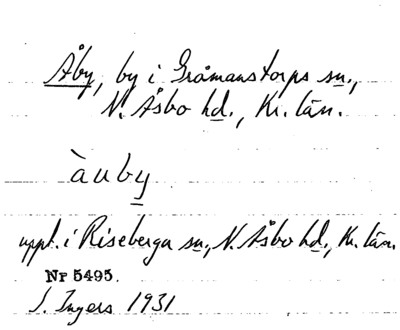 Åby, by i Gråmanstorps sn.,
N. Åsbo hd., Kr. län.
àuby
uppt. i Riseberga sn., N. Åsbo hd., Kr. län.
Nr 5495.
I. Ingers 1931